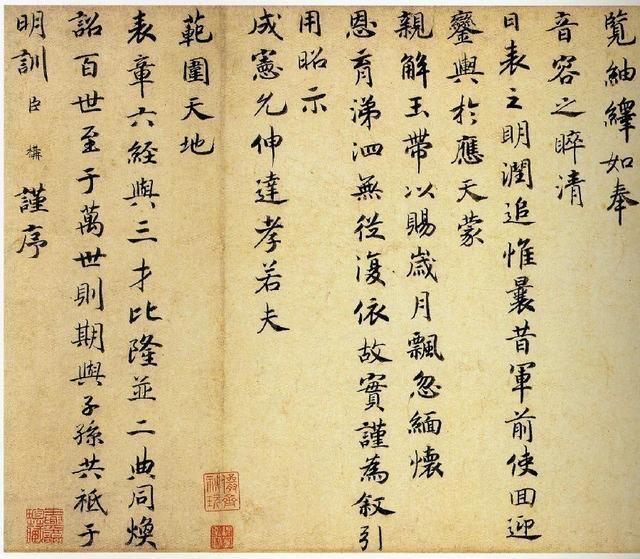 覽紬繹如奉
音容之睟清
日表之明潤追惟曩昔軍前使回迎
鑾輿於應天蒙
親解玉帶以賜歲月飄忽緬懷
恩育涕泗無從復依故實謹為敘引
用昭示
成憲允伸達孝若夫
範圍天地
表章六經與三才比隆並二典同煥
詔百世至于萬世則期與子孫共祗于
明訓臣構謹序